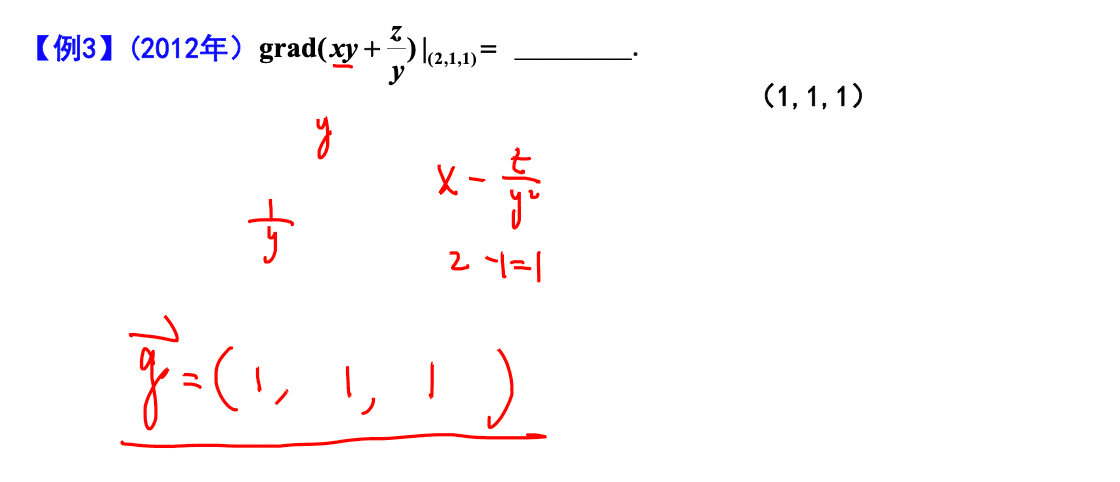 【例3】(2012年) grad(xy + z/y)|(2,1,1) = ________.
(1,1,1)
y
x - z/y²
1/y
2 -1=1
g⃗ = (1, 1, 1)